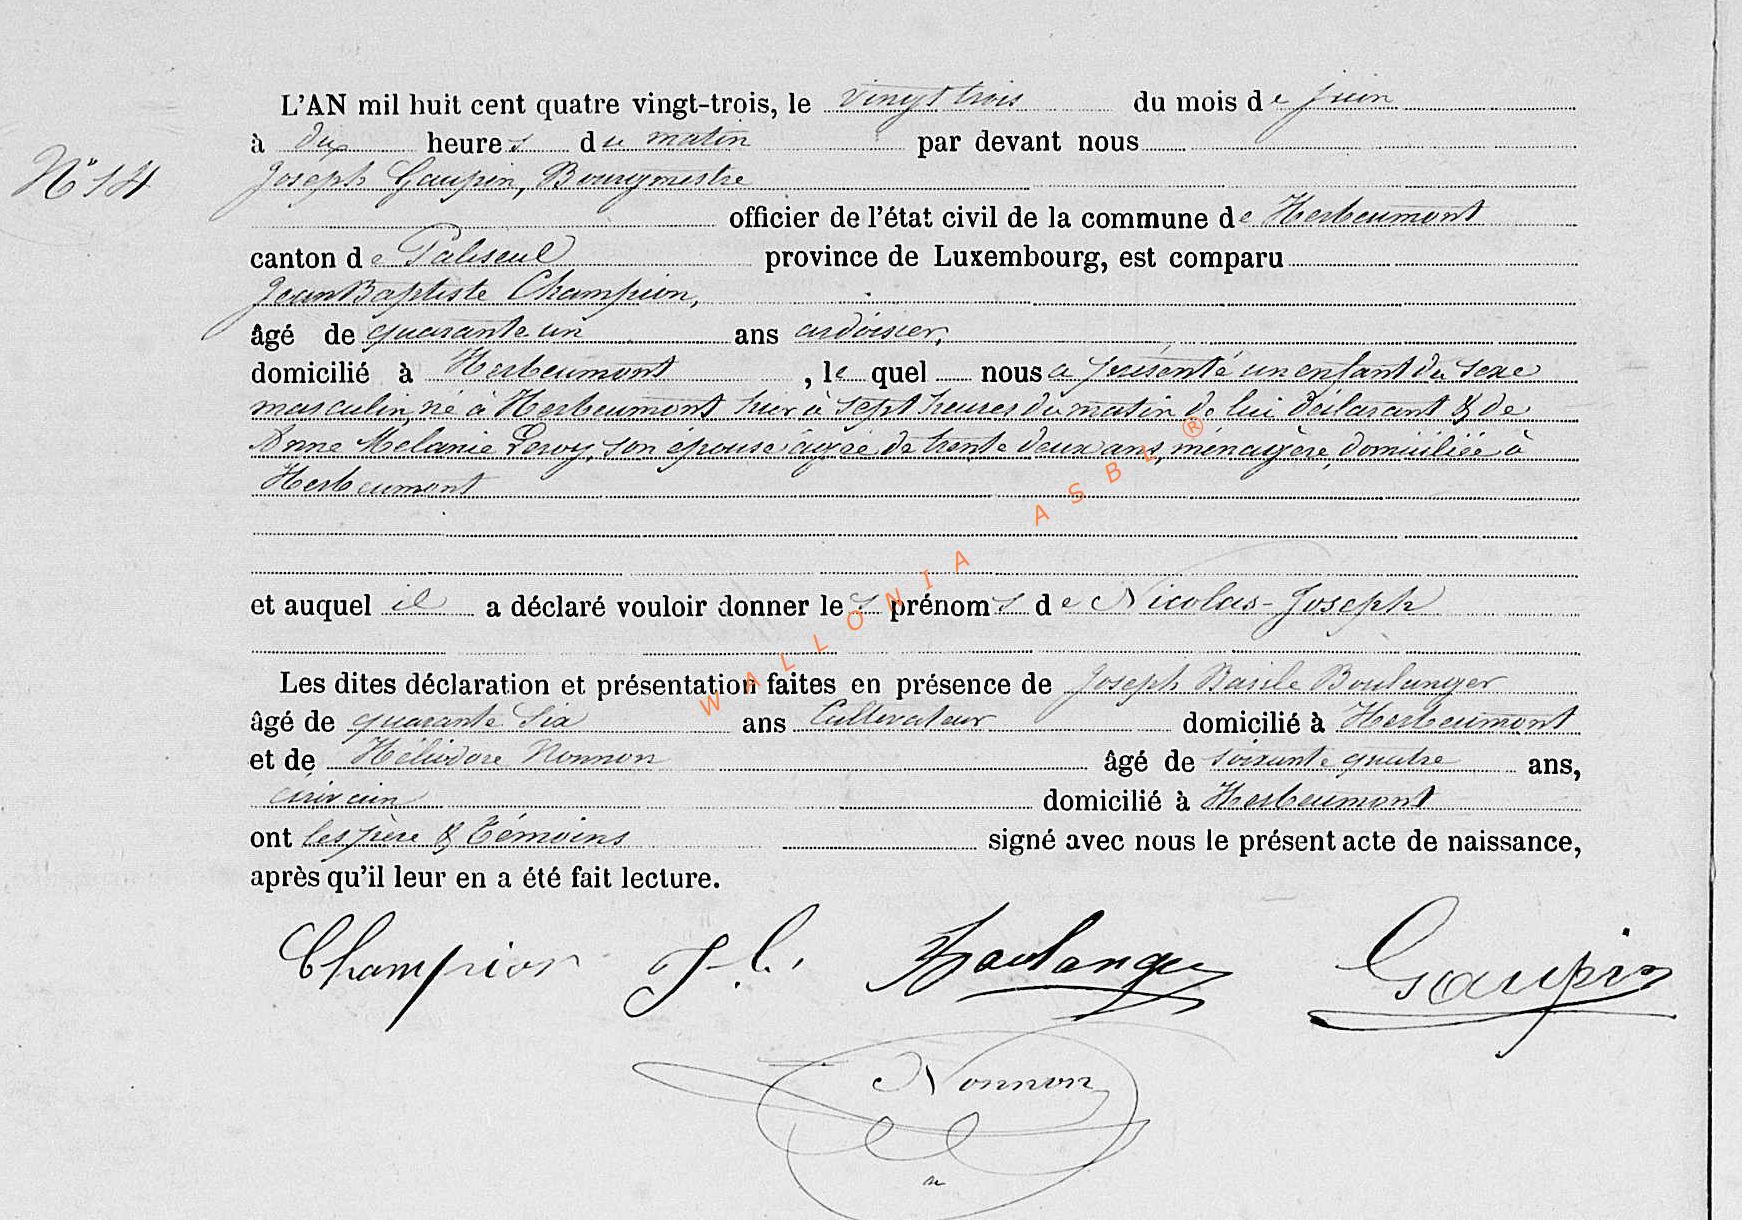 L'AN mil huit cent quatre vingt-trois, le vingt trois du mois de juin
à dix heures du matin par devant nous
N° 14
Joseph Gaupin, Bourgmestre
officier de l'état civil de la commune de Herbeumont
canton de Paliseul province de Luxembourg, est comparu
Jean Baptiste Champion,
âgé de quarante un ans ardoisier,
domicilié à Herbeumont, lequel nous a présenté un enfant du sexe
masculin, né à Herbeumont hier à sept heures du matin de lui déclarant & de
Anne Mélanie Leroy, son épouse âgée de trente deux ans, ménagère, domiciliée à
Herbeumont
et auquel il a déclaré vouloir donner les prénoms de Nicolas-Joseph
Les dites déclaration et présentation faites en présence de Joseph Basile Boulanger
âgé de quarante six ans Cultivateur domicilié à Herbeumont
et de Héliodore Nonnon âgé de soixante quatre ans,
écrivain domicilié à Herbeumont
ont les père & témoins signé avec nous le présent acte de naissance,
après qu'il leur en a été fait lecture.
Champion J. Boulanger Gaupin
Nonnon
WALLONIA ASBL ®